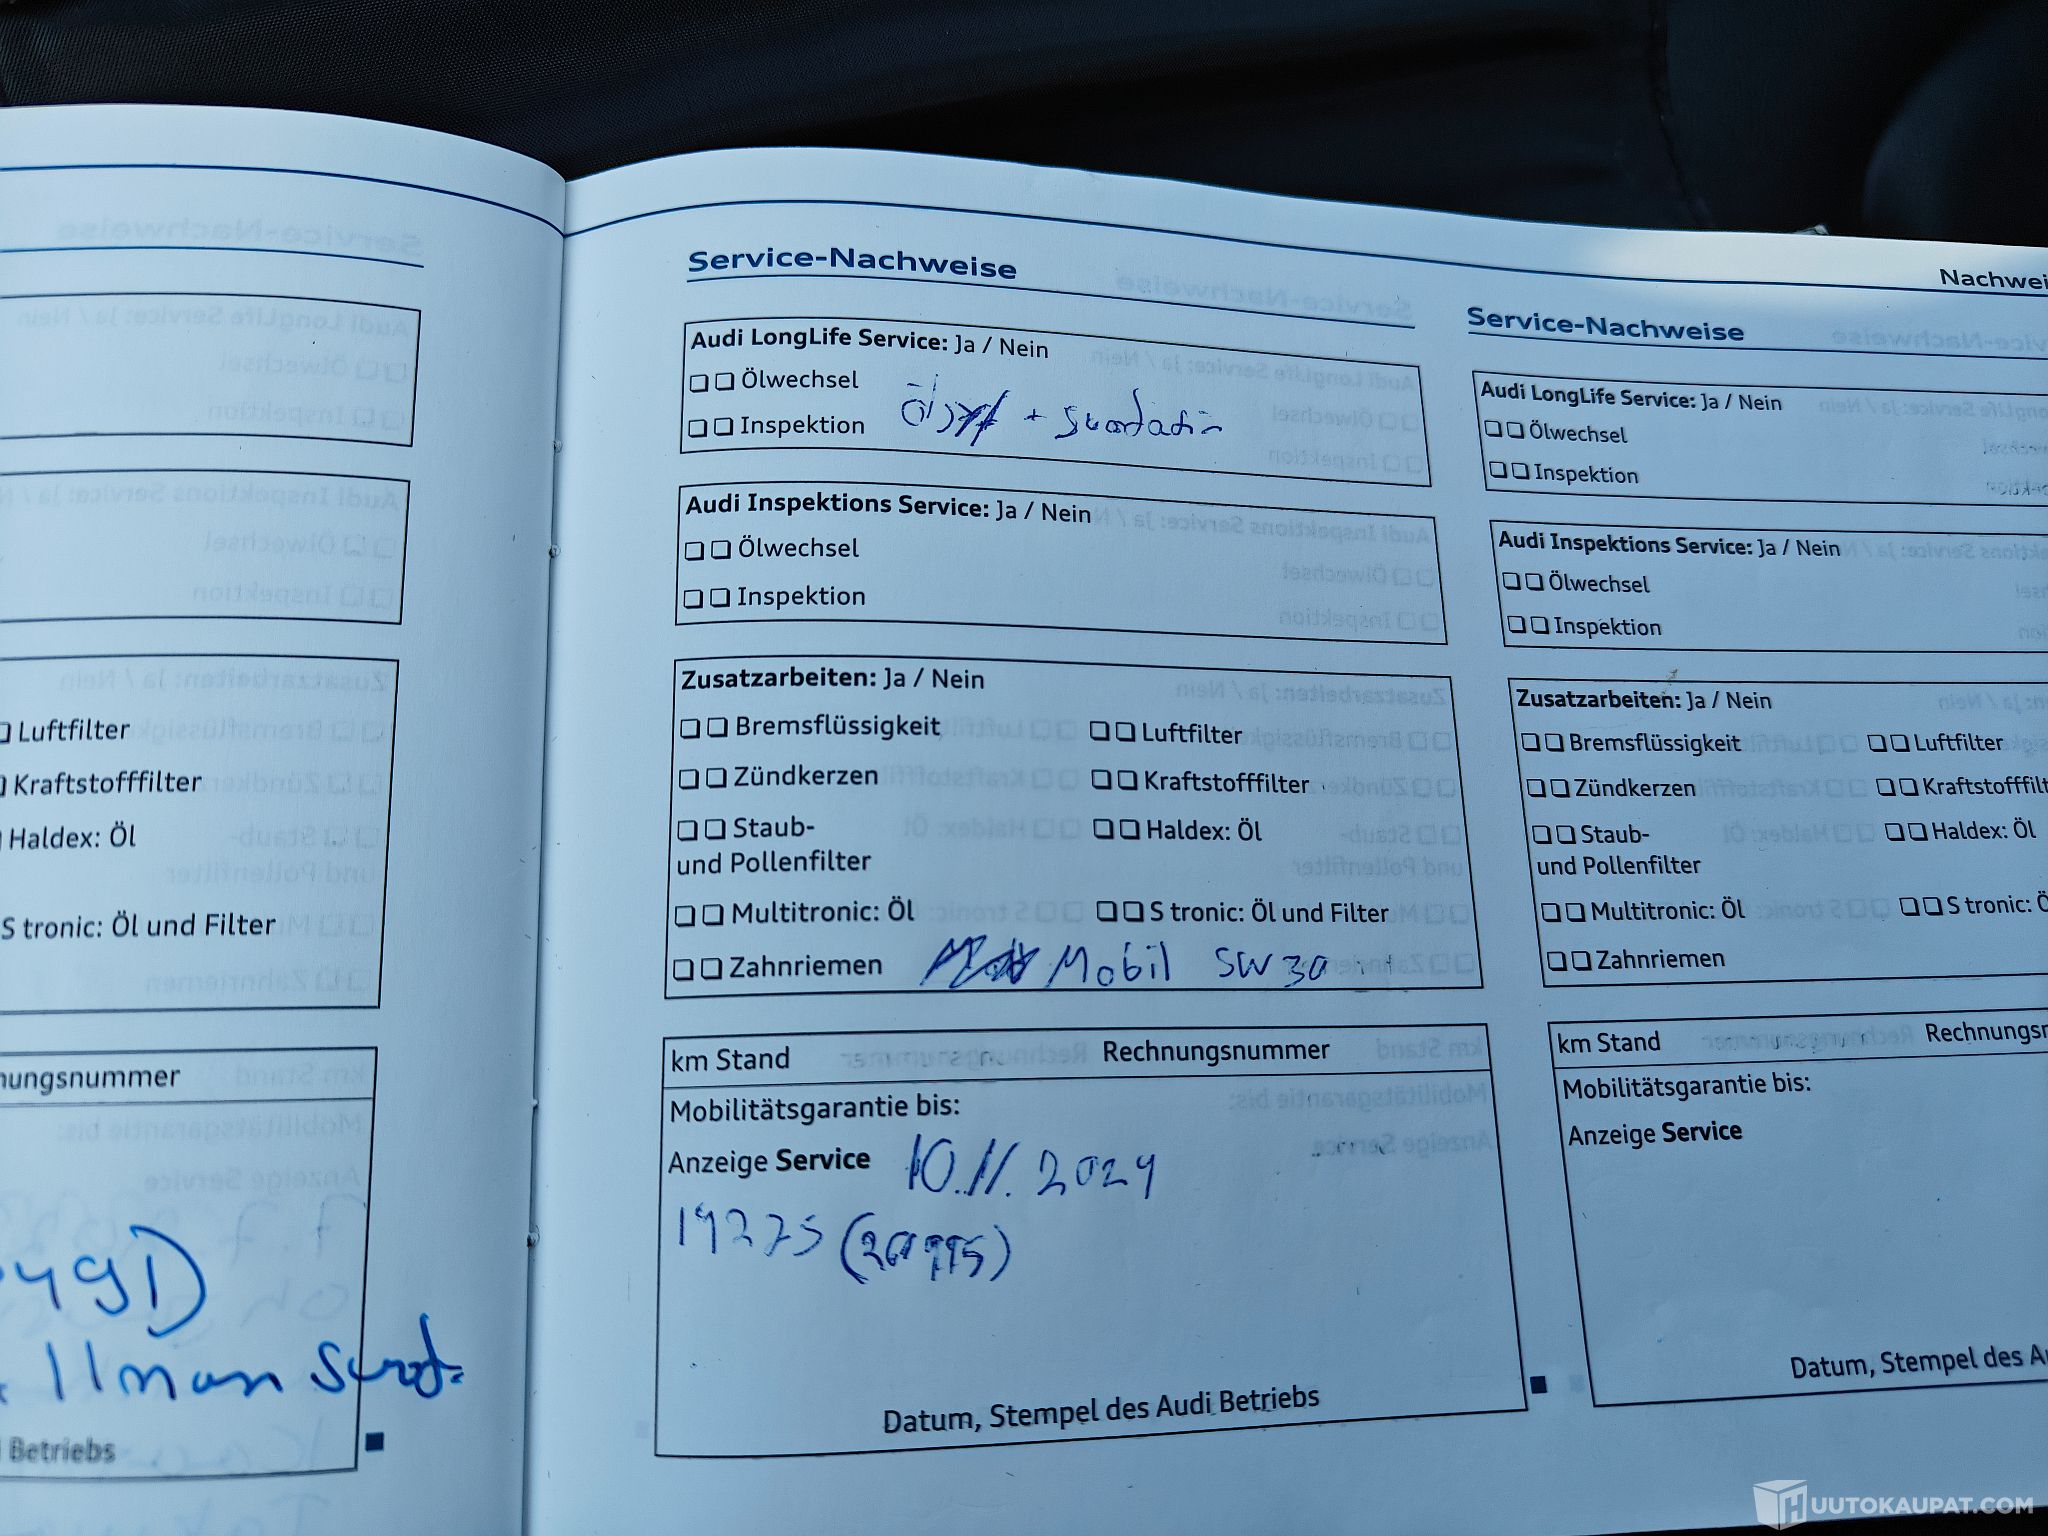 Luftfilter
Kraftstofffilter
Haldex: Öl
S tronic: Öl und Filter
nungsnummer
49D
Ilman
Betriebs
Service-Nachweise
Audi LongLife Service: Ja / Nein
Ölwechsel
Inspektion
+ Suodatin
Audi Inspektions Service: Ja / Nein
Ölwechsel
Inspektion
Zusatzarbeiten: Ja / Nein
Bremsflüssigkeit Luftfilter
Zündkerzen Kraftstofffilter
Staub- Haldex: Öl
und Pollenfilter
Multitronic: Öl S tronic: Öl und Filter
Zahnriemen Mobil 5W30
km Stand Rechnungsnummer
Mobilitätsgarantie bis:
Anzeige Service 10.11.2024
Datum, Stempel des Audi Betriebs
Nachwei
Service-Nachweise
Audi LongLife Service: Ja / Nein
Ölwechsel
Inspektion
Audi Inspektions Service: Ja / Nein
Ölwechsel
Inspektion
Zusatzarbeiten: Ja / Nein
Bremsflüssigkeit Luftfilter
Zündkerzen Kraftstofffilt
Staub- Haldex: Öl
und Pollenfilter
Multitronic: Öl S tronic: Ö
Zahnriemen
km Stand Rechnungsnr
Mobilitätsgarantie bis:
Anzeige Service
Datum, Stempel des Au
HUUTOKAUPAT.COM